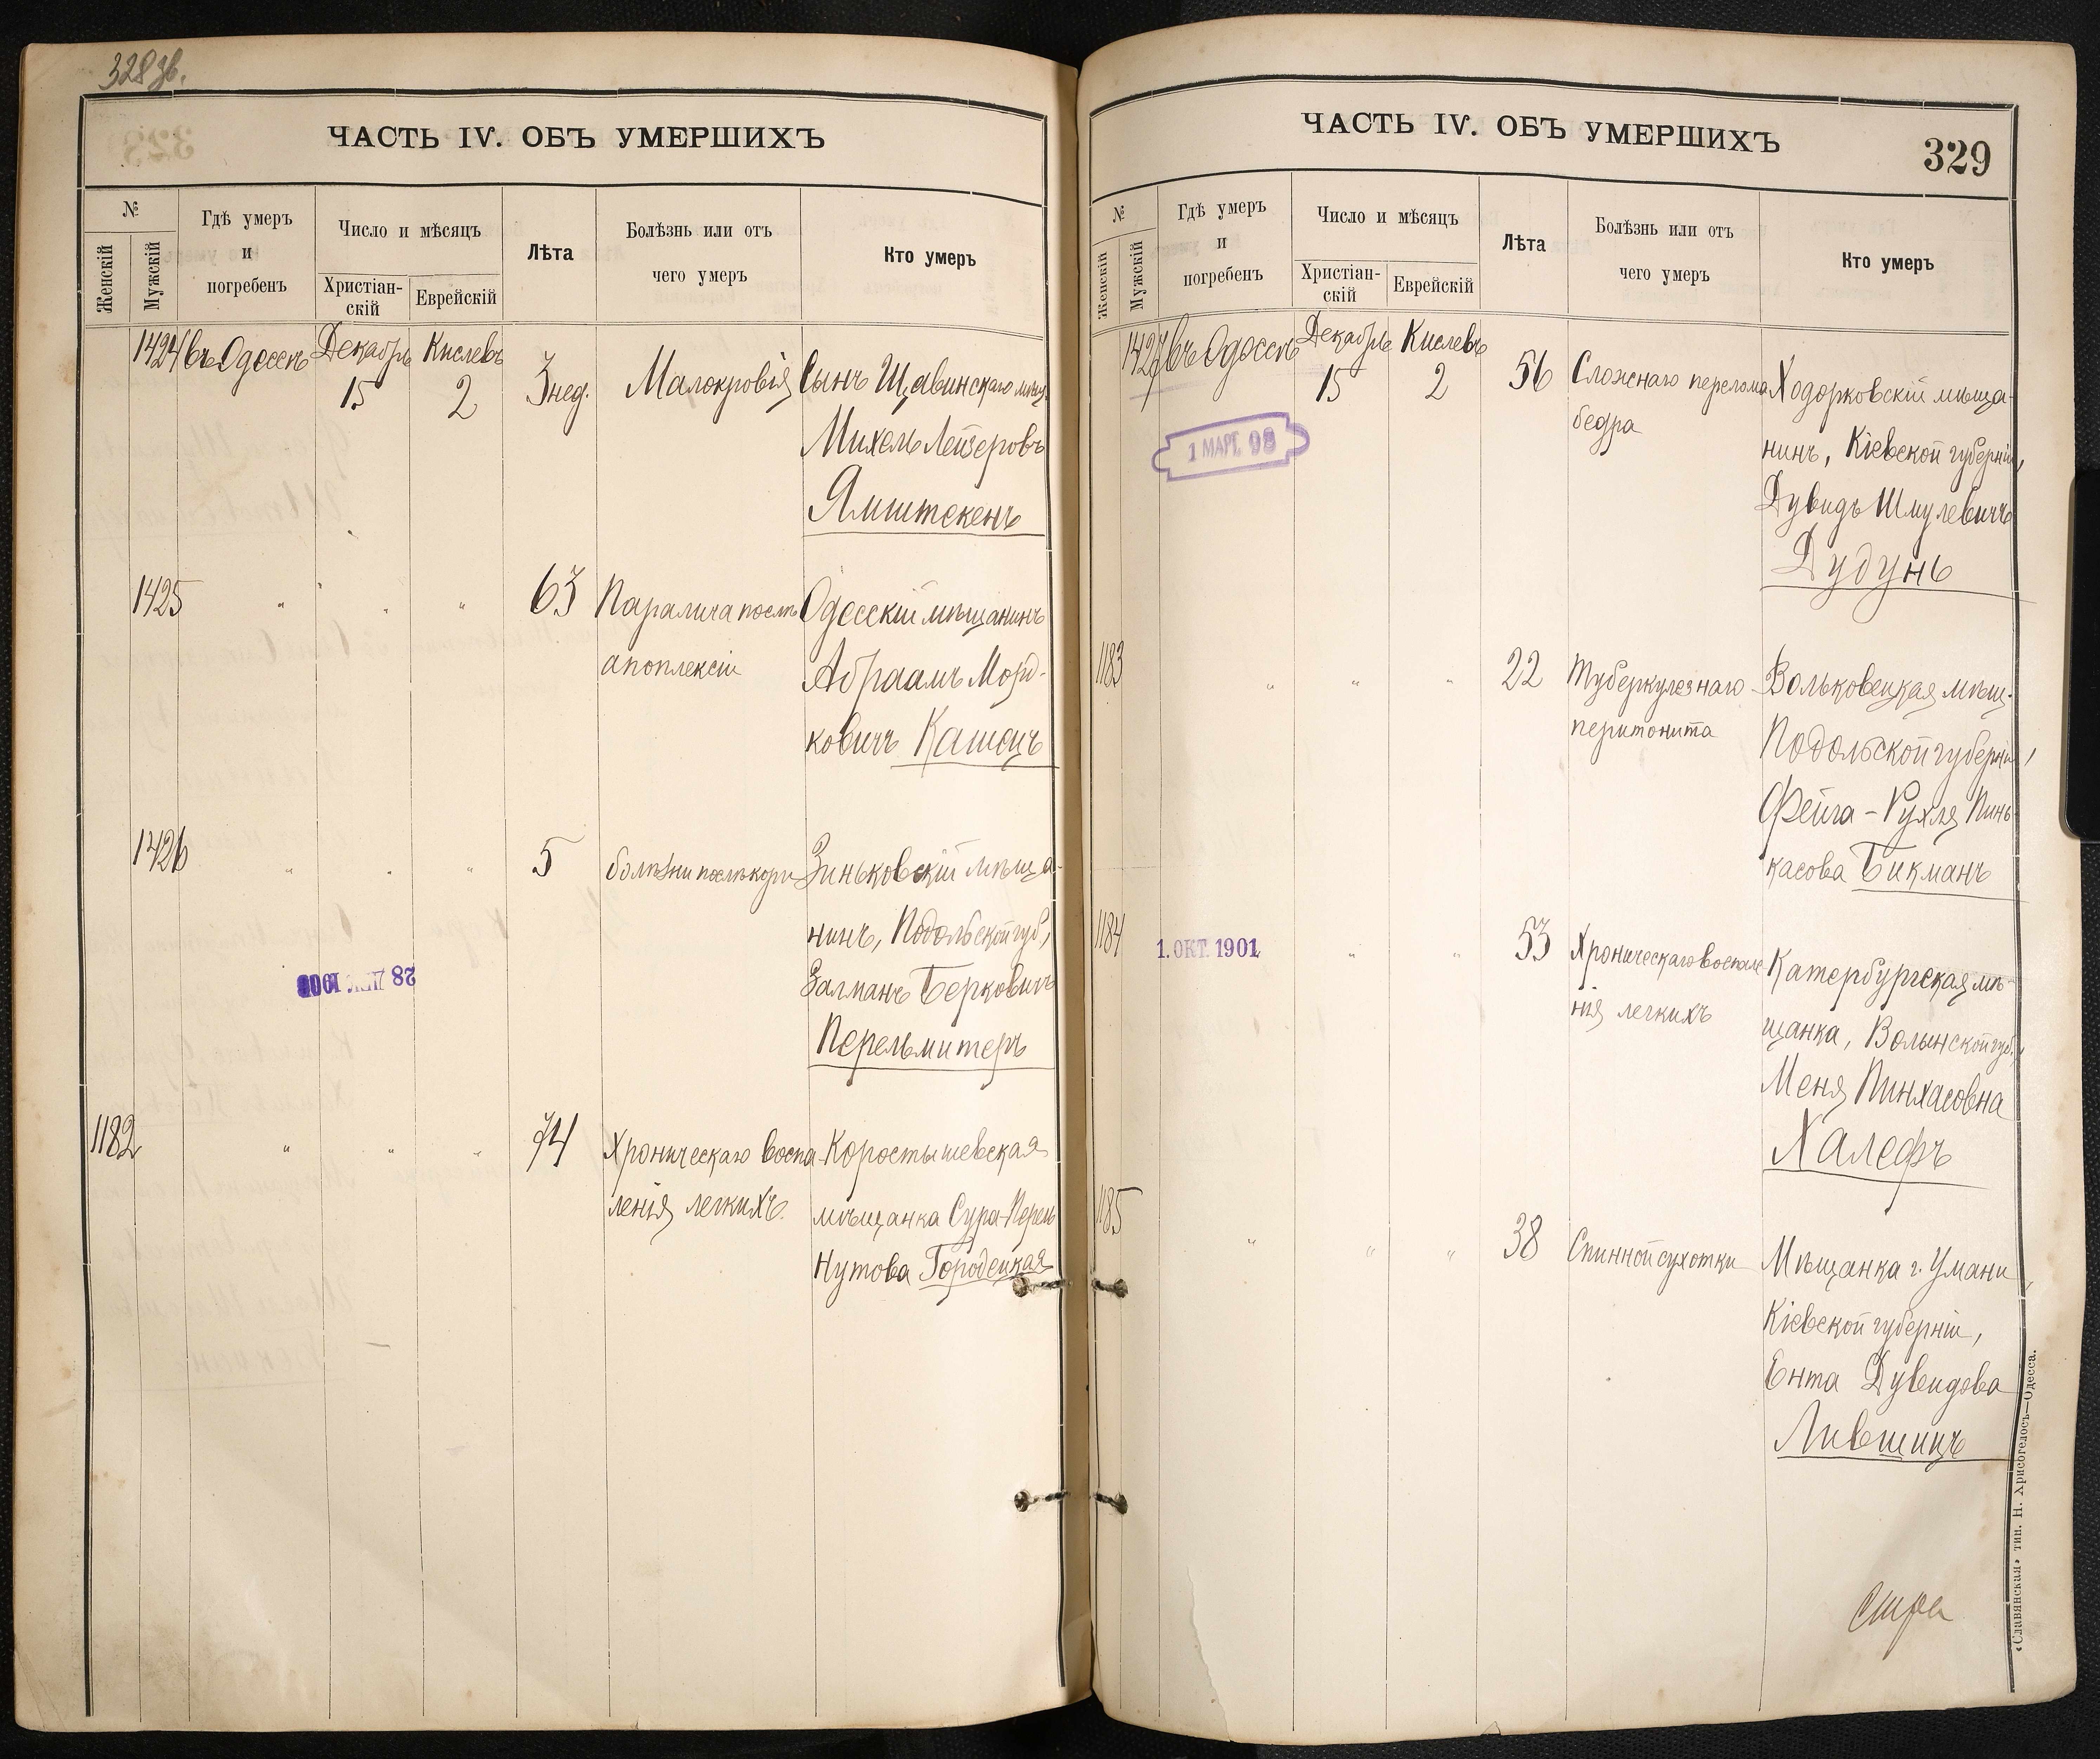 328 зв.
ЧАСТЬ IV. ОБЪ УМЕРШИХЪ
№
Женскій
Мужскій
Гдѣ умеръ
и
погребенъ
Число и мѣсяцъ
Христіан-
скій
Еврейскій
Лѣта
Болѣзнь или отъ
чего умеръ
Кто умеръ
1424 въ Одессѣ Декабрь Кислевъ
15 2 3 нед. Малокровія Сынъ Щавинскаго мѣщ.
Михель Лейзеровъ
Ямштекенъ
1425 " " " 63 Паралича послѣ Одесскій мѣщанинъ
апоплексіи Абраамъ Морд-
ковичъ Кашецъ
1426 " " " 5 болѣзни послѣ кори Зиньковскій мѣща-
нинъ, Подольской губ.,
Залманъ Берковичъ
28 ДЕК 190
Перельмитеръ
1182 " " " 74 Хроническаго воспа- Коростышевская
ленія легкихъ. мѣщанка Сура-Перель
Нутова Городецкая
ЧАСТЬ IV. ОБЪ УМЕРШИХЪ
329
№
Женскій
Мужскій
Гдѣ умеръ
и
погребенъ
Число и мѣсяцъ
Христіан-
скій
Еврейскій
Лѣта
Болѣзнь или отъ
чего умеръ
Кто умеръ
1427 въ Одессѣ Декабрь Кислевъ
15 2 56 Сложнаго перелома Ходорковскій мѣща-
бедра нинъ, Кіевской губерніи,
1 МАРТ. 08
Дувидъ Шмулевичъ
Дудунъ
1183 " " " 22 Туберкулезнаго Вольковецкая мѣщ.
перитонита Подольской губерніи,
Фейга-Рухля Пинь-
касова Бикманъ
1184 1. ОКТ. 1901 " " 53 Хроническаго воспале- Катербургская мѣ-
нія легкихъ щанка, Волынской губ.,
Меня Пинхасовна
Халефъ
1185 " " " 38 Спинной сухотки Мѣщанка г. Умани,
Кіевской губерніи,
Ента Дувидова
Лившицъ
«Славянская» тип. Н. Хрисогелосъ—Одесса.